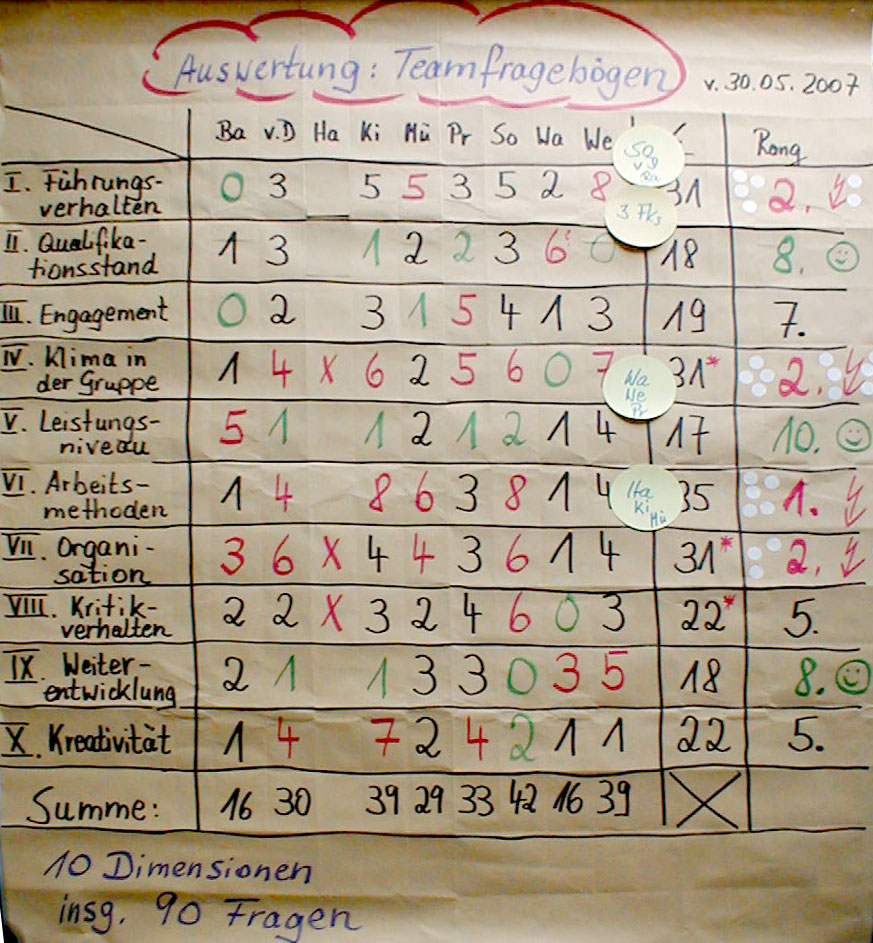 Auswertung: Teamfragebögen v. 30.05.2007
Ba v.D Ha Ki Mü Pr So Wa We Σ Rang
I. Führungs-
verhalten 0 3 5 5 3 5 2 8 31 2.
II. Qualifika-
tionsstand 1 3 1 2 2 3 6 0 18 8.
III. Engagement 0 2 3 1 5 4 1 3 19 7.
IV. Klima in
der Gruppe 1 4 X 6 2 5 6 0 7 31* 2.
V. Leistungs-
niveau 5 1 1 2 1 2 1 4 17 10.
VI. Arbeits-
methoden 1 4 8 6 3 8 1 4 35 1.
VII. Organi-
sation 3 6 X 4 4 3 6 1 4 31* 2.
VIII. Kritik-
verhalten 2 2 X 3 2 4 6 0 3 22* 5.
IX. Weiter-
entwicklung 2 1 1 3 3 0 3 5 18 8.
X. Kreativität 1 4 7 2 4 2 1 1 22 5.
Summe: 16 30 39 29 33 42 16 39
So
v D
Ba
3 Fks
Wa
We
Pr
Ha
Ki
Mü
10 Dimensionen
insg. 90 Fragen